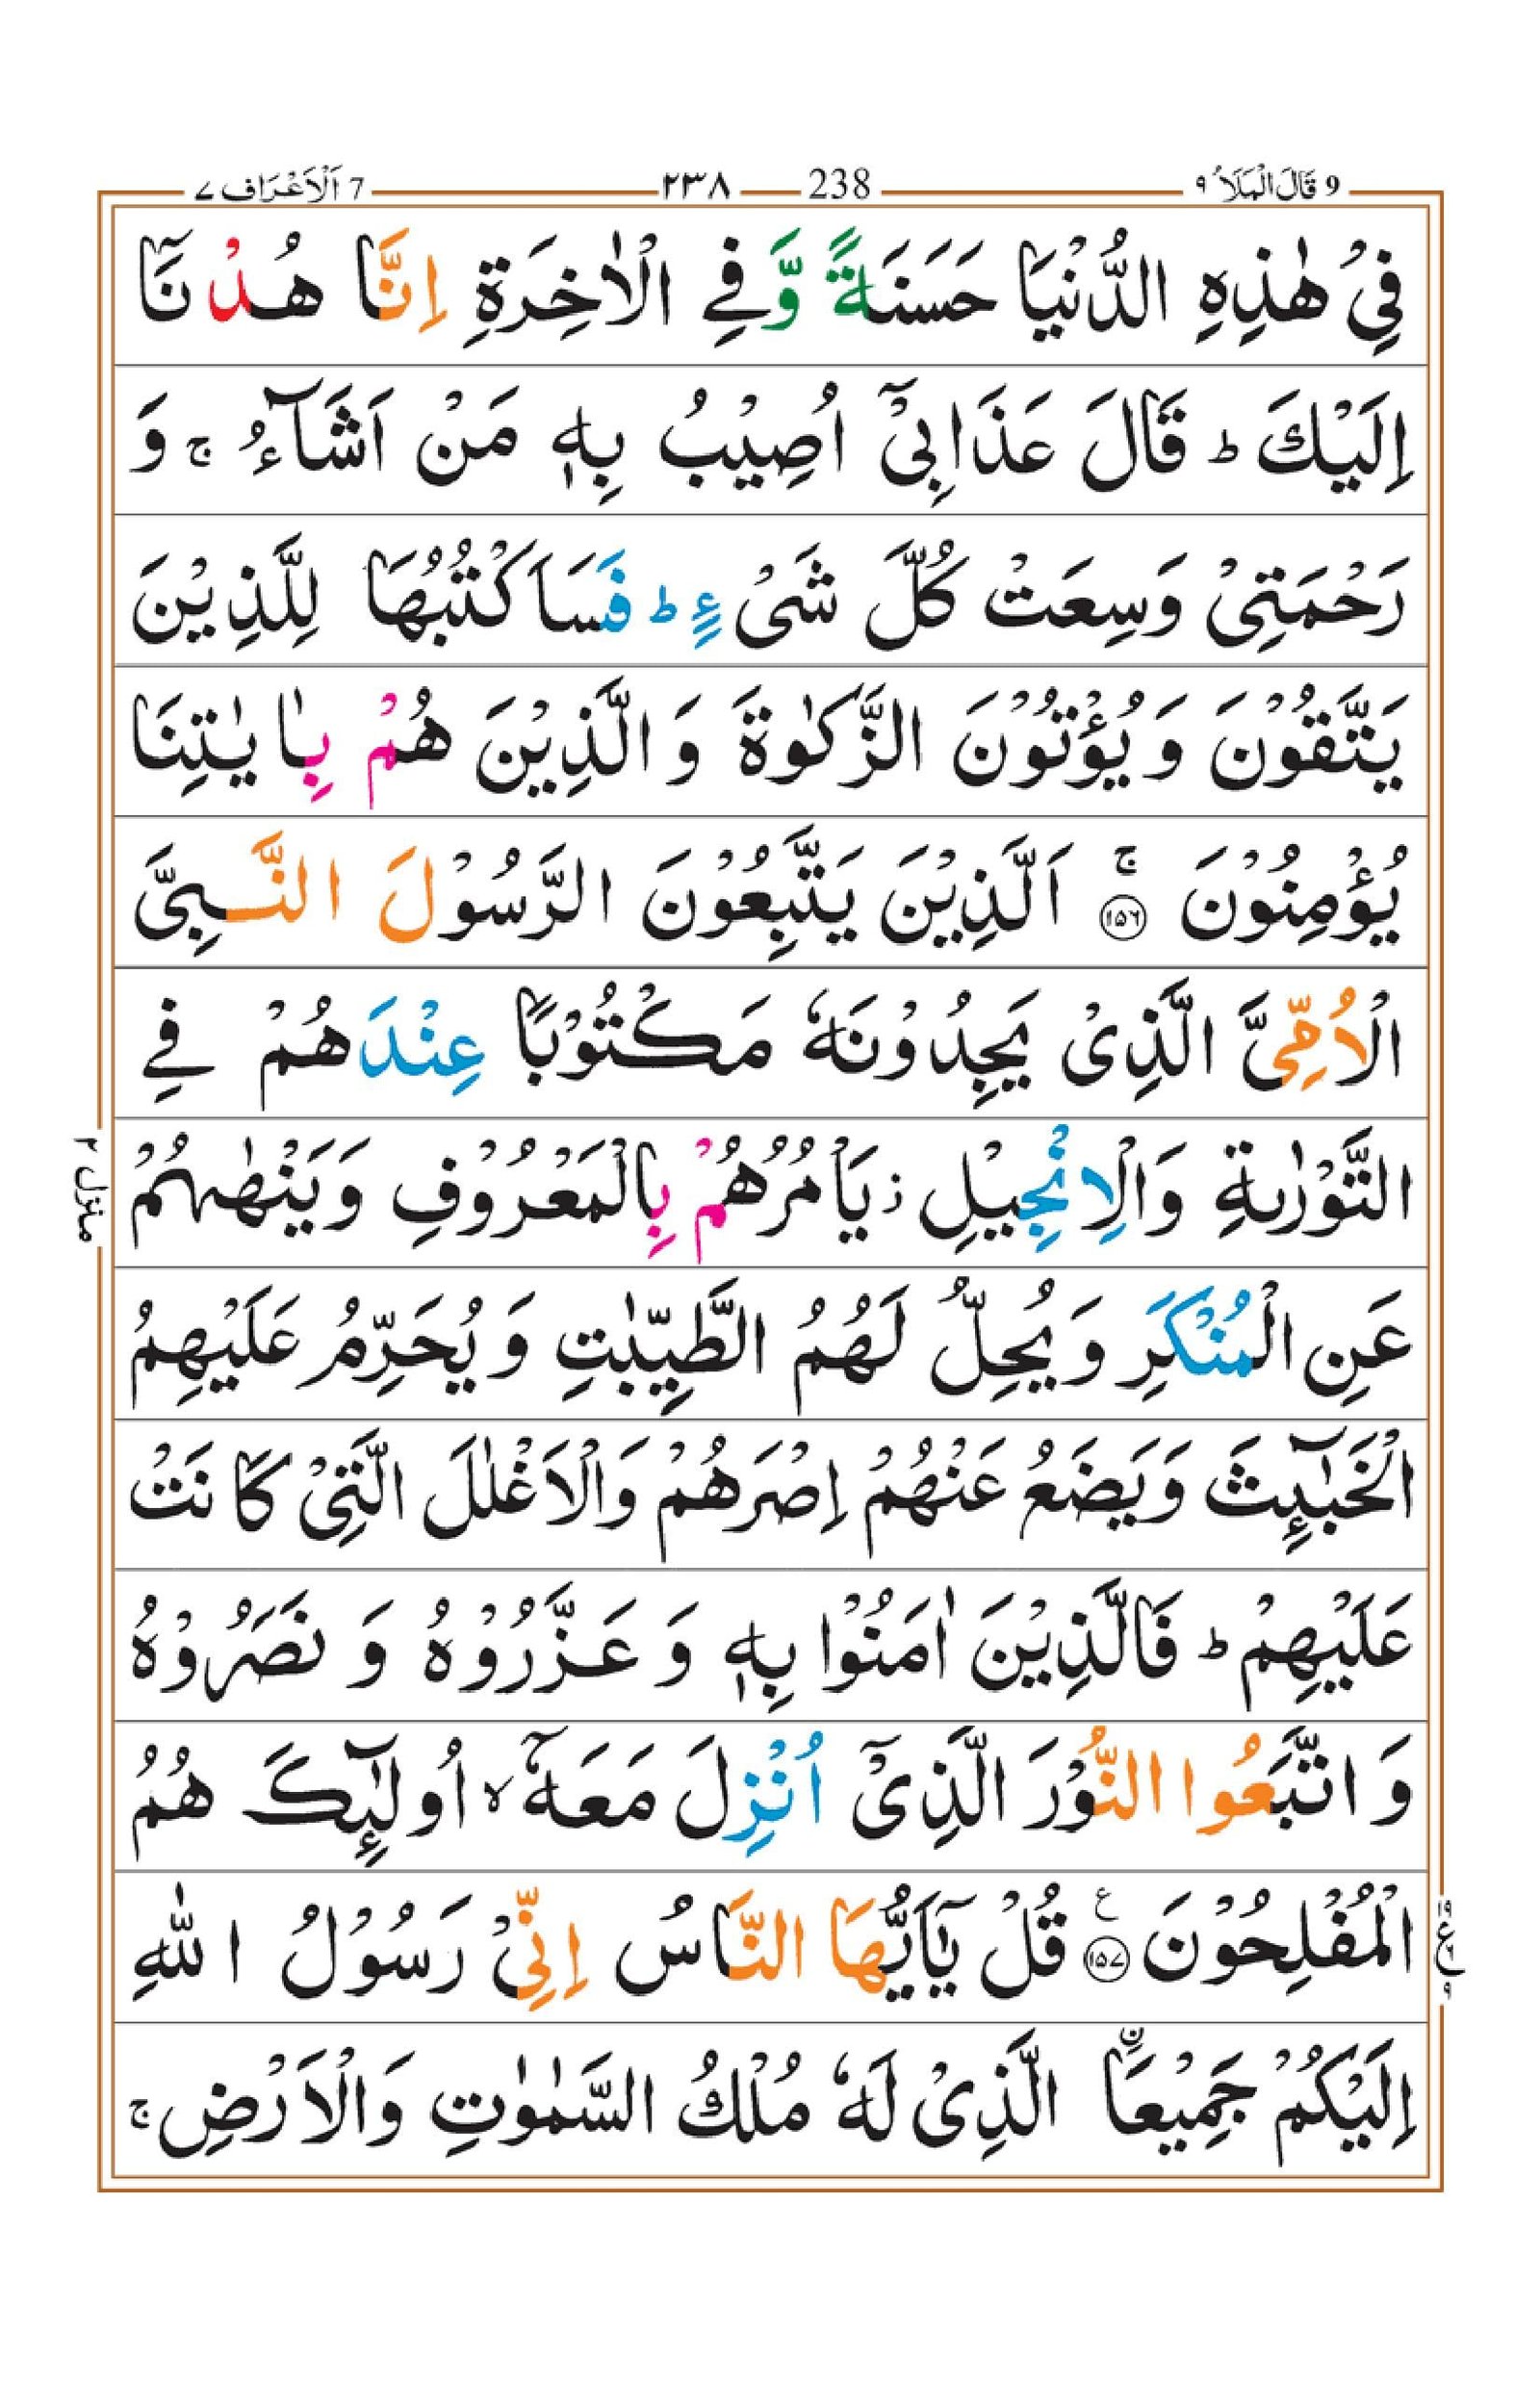 9 قَالَ الْمَلَاُ ٩ 238 ٢٣٨ 7 اَلْاَعْرَاف ٧
فِیْ هٰذِهِ الدُّنْیَا حَسَنَةً وَّفِی الْاٰخِرَةِ اِنَّا هُدْنَاۤ
اِلَیْكَ ؕ قَالَ عَذَابِیْۤ اُصِیْبُ بِهٖ مَنْ اَشَآءُ ۚ وَ
رَحْمَتِیْ وَسِعَتْ كُلَّ شَیْءٍ ؕ فَسَاَكْتُبُهَا لِلَّذِیْنَ
یَتَّقُوْنَ وَیُؤْتُوْنَ الزَّكٰوةَ وَالَّذِیْنَ هُمْ بِاٰیٰتِنَا
یُؤْمِنُوْنَ ۚ ﴿۱۵۶﴾ اَلَّذِیْنَ یَتَّبِعُوْنَ الرَّسُوْلَ النَّبِیَّ
الْاُمِّیَّ الَّذِیْ یَجِدُوْنَهٗ مَكْتُوْبًا عِنْدَهُمْ فِی
التَّوْرٰىةِ وَالْاِنْجِیْلِ ؗ یَاْمُرُهُمْ بِالْمَعْرُوْفِ وَیَنْهٰىهُمْ
عَنِ الْمُنْكَرِ وَیُحِلُّ لَهُمُ الطَّیِّبٰتِ وَیُحَرِّمُ عَلَیْهِمُ
الْخَبٰٓىِٕثَ وَیَضَعُ عَنْهُمْ اِصْرَهُمْ وَالْاَغْلٰلَ الَّتِیْ كَانَتْ
عَلَیْهِمْ ؕ فَالَّذِیْنَ اٰمَنُوْا بِهٖ وَعَزَّرُوْهُ وَنَصَرُوْهُ
وَاتَّبَعُوا النُّوْرَ الَّذِیْۤ اُنْزِلَ مَعَهٗۤ ۙ اُولٰٓىِٕكَ هُمُ
الْمُفْلِحُوْنَ ﴿۱۵۷﴾ ع قُلْ یٰۤاَیُّهَا النَّاسُ اِنِّیْ رَسُوْلُ اللّٰهِ
اِلَیْكُمْ جَمِیْعَاۨ الَّذِیْ لَهٗ مُلْكُ السَّمٰوٰتِ وَالْاَرْضِ ۚ
منزل ٢